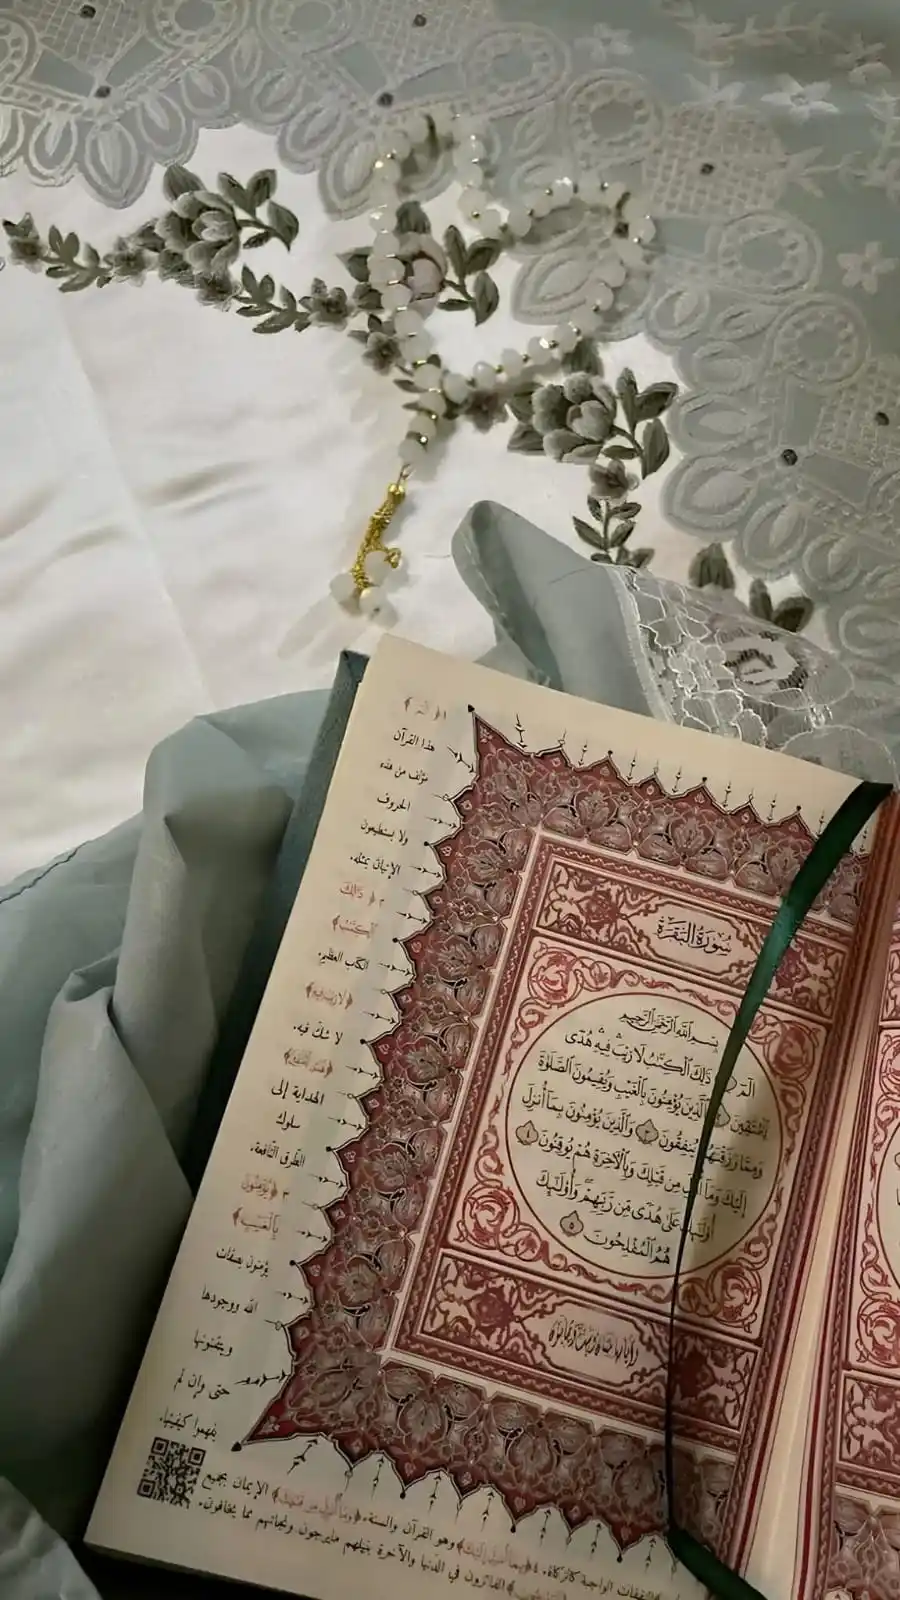 سُورَةُ البَقَرَةِ
بِسْمِ ٱللَّهِ ٱلرَّحْمَٰنِ ٱلرَّحِيمِ
الٓمٓ ذَٰلِكَ ٱلْكِتَٰبُ لَا رَيْبَ فِيهِ هُدًى
لِّلْمُتَّقِينَ ٢ ٱلَّذِينَ يُؤْمِنُونَ بِٱلْغَيْبِ وَيُقِيمُونَ ٱلصَّلَوٰةَ
وَمِمَّا رَزَقْنَٰهُمْ يُنفِقُونَ ٣ وَٱلَّذِينَ يُؤْمِنُونَ بِمَآ أُنزِلَ
إِلَيْكَ وَمَآ أُنزِلَ مِن قَبْلِكَ وَبِٱلْءَاخِرَةِ هُمْ يُوقِنُونَ ٤
أُو۟لَٰٓئِكَ عَلَىٰ هُدًى مِّن رَّبِّهِمْ وَأُو۟لَٰٓئِكَ
هُمُ ٱلْمُفْلِحُونَ ٥
١ ﴿الٓمٓ﴾
هذا القرآن
مؤلف من هذه
الحروف
ولا يستطيعون
الإتيان بمثله.
٢ ﴿ذَٰلِكَ
ٱلْكِتَٰبُ﴾
الكتاب العظيم.
﴿لَا رَيْبَ فِيهِ﴾
لا شك فيه.
الهداية إلى
سلوك
الطرق النافعة.
٣ ﴿يُؤْمِنُونَ
بِٱلْغَيْبِ﴾
يؤمنون بصفات
الله ووجودها
ويتيقنونها
حتى وإن لم
يفهموا كيفيتها.
النفقات الواجبة كالزكاة. ٤ ﴿بِمَآ أُنزِلَ إِلَيْكَ﴾ وهو القرآن والسنة. ﴿وَمَآ أُنزِلَ مِن قَبْلِكَ﴾ الإيمان بجميع
الفائزون في الدنيا والآخرة بنيلهم ما يرجون ونجاتهم مما يخافون.